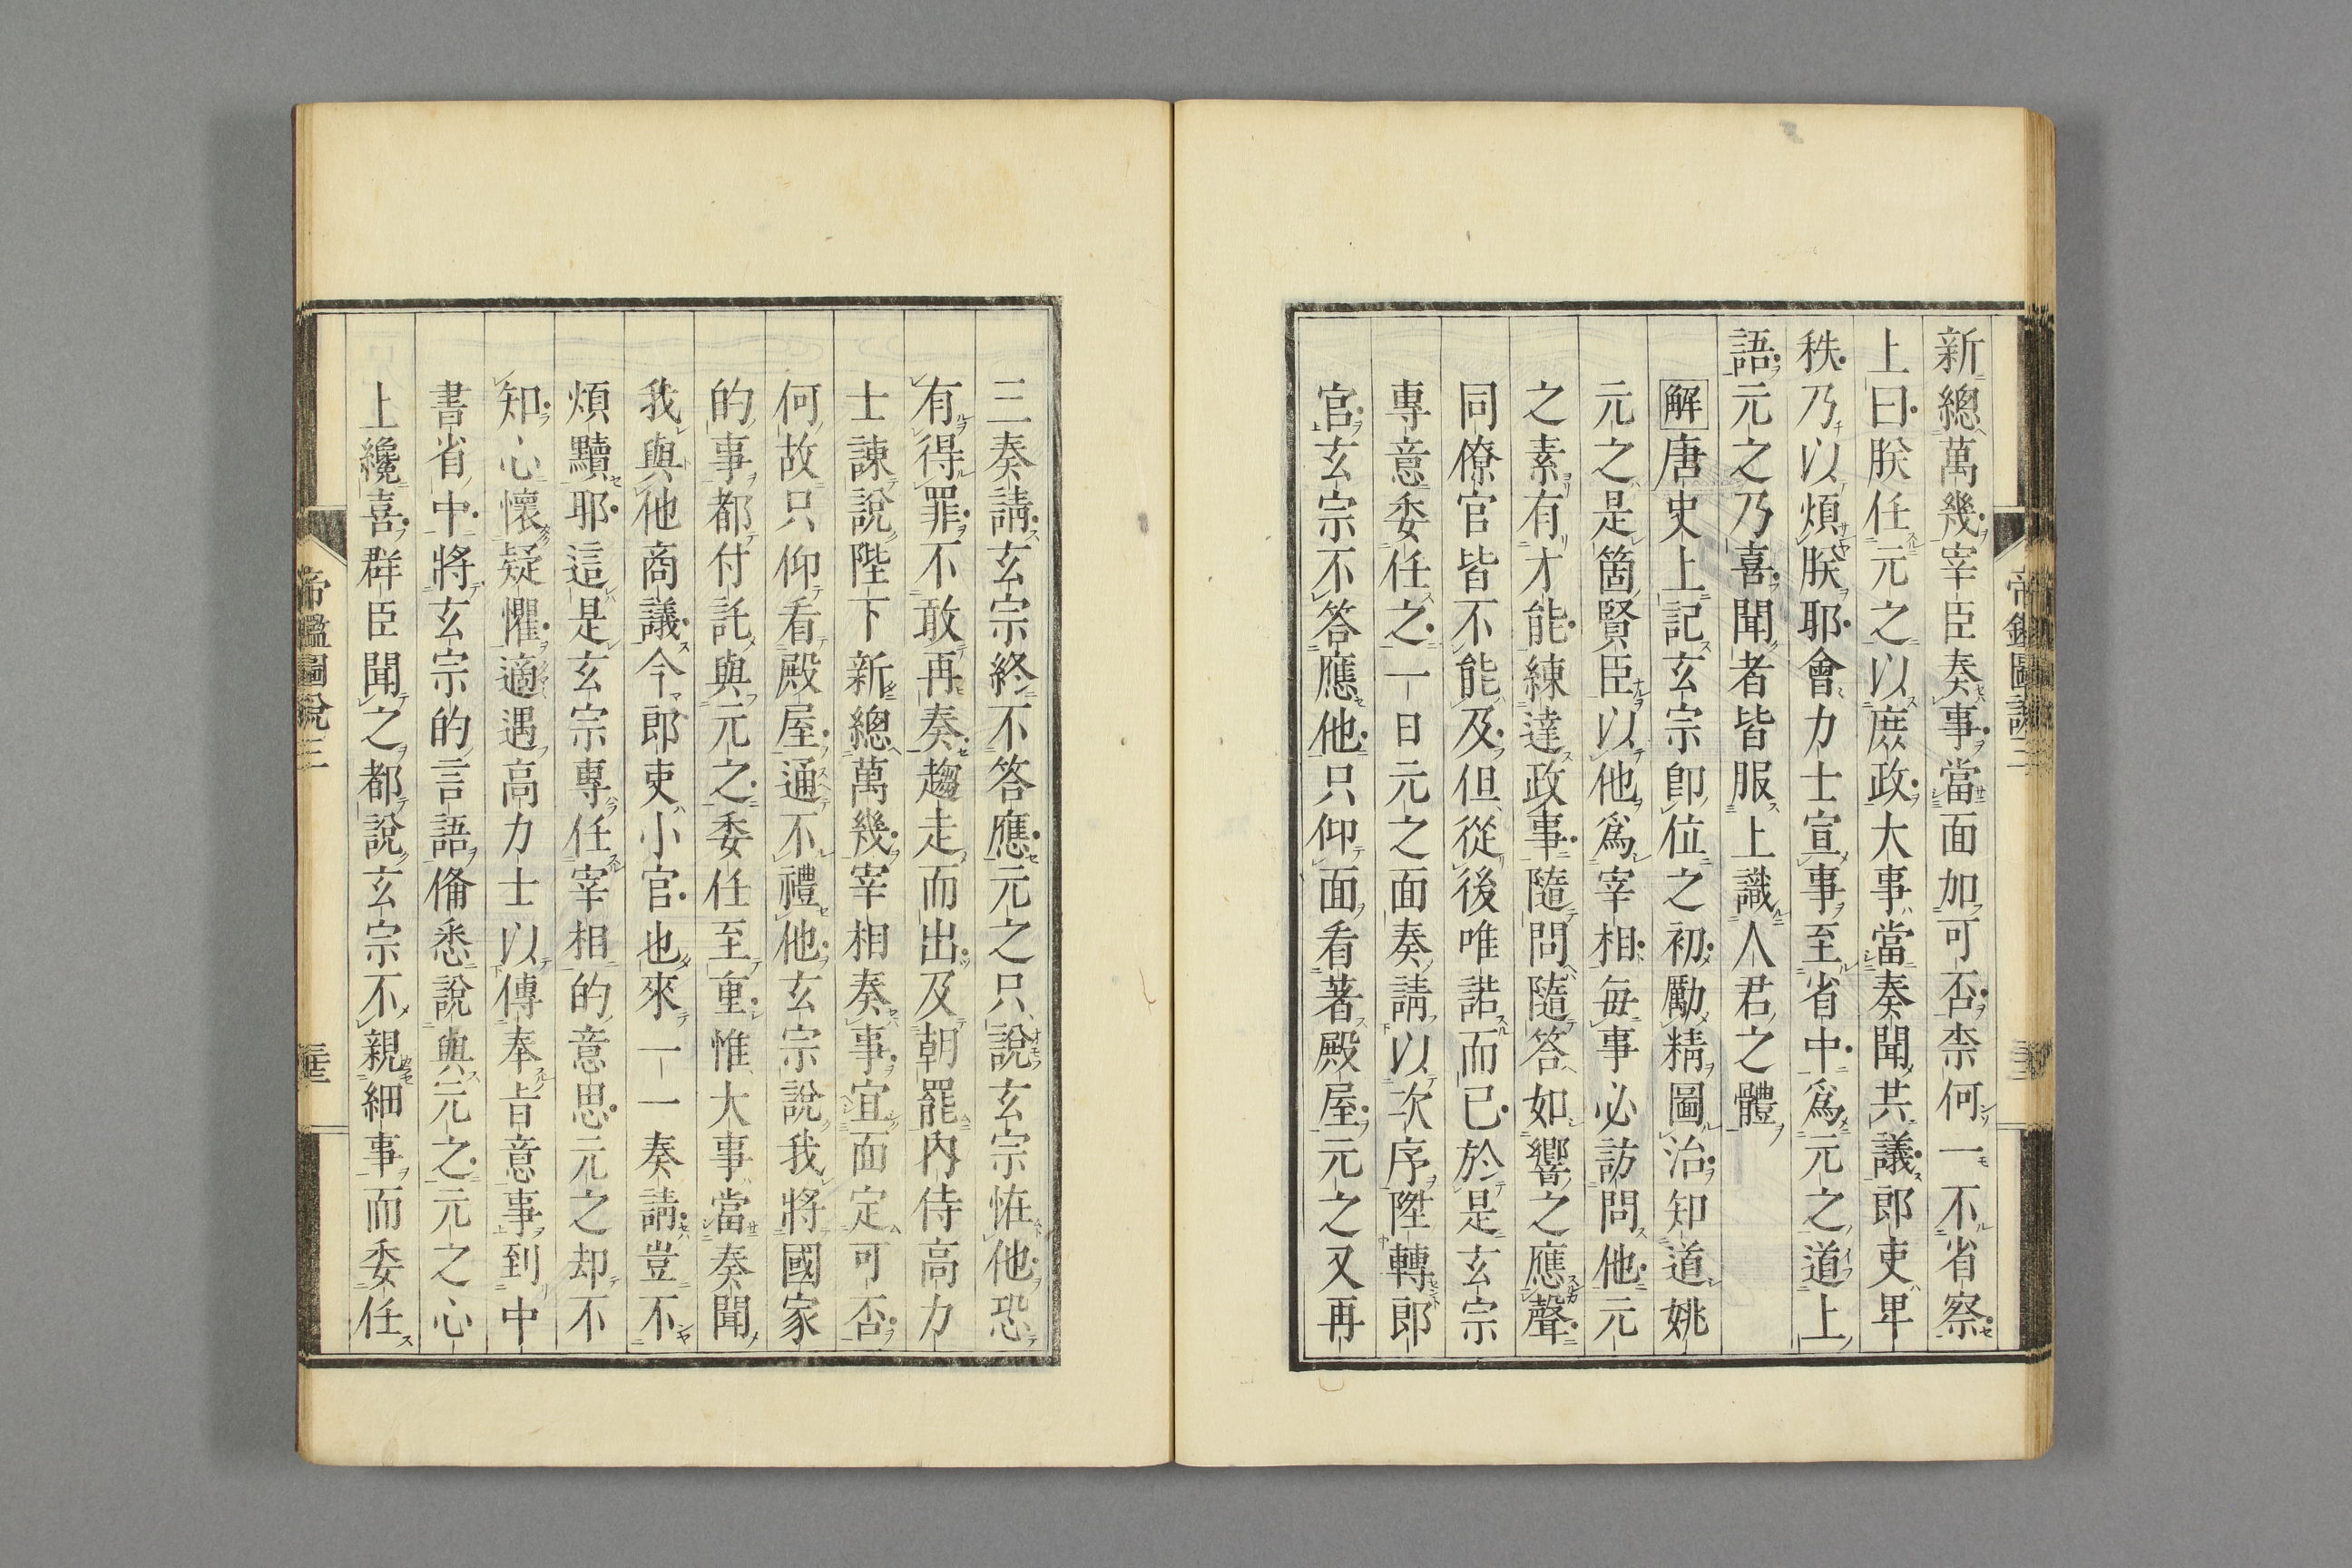 新總萬幾宰臣奏事當面加可否柰何一不省察
上曰朕任元之以庶政大事當奏聞共議郎吏卑
秩乃以煩朕耶會力士宣事至省中爲元之道上
語元之乃喜聞者皆服上識人君之體
解唐史上記玄宗卽位之初勵精圖治知道姚
元之是箇賢臣以他爲宰相每事必訪問他元
之素有才能練達政事隨問隨答如響之應聲
同僚官皆不能及但從後唯諾而已於是玄宗
專意委任之一日元之面奏請以次序陞轉郎
官玄宗不答應他只仰面看著殿屋元之又再
帝鑑圖說三
三奏請玄宗終不答應元之只說玄宗恠他恐
有得罪不敢再奏趨走而出及朝罷內侍高力
士諫說陛下新總萬幾宰相奏事宜面定可否
何故只仰看殿屋通不禮他玄宗說我將國家
的事都付託與元之委任至重惟大事當奏聞
我與他商議今郎吏小官也來一一奏請豈不
煩黷耶這是玄宗專任宰相的意思元之却不
知心懷疑懼適遇高力士以傳奉旨意事到中
書省中將玄宗的言語俻悉說與元之元之心
上纔喜群臣聞之都說玄宗不親細事而委任
帝鑑圖說三